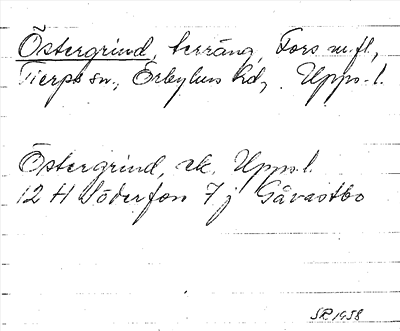 Östergrind, terräng, Fors m.fl.,
Tierps sn., Örbyhus hd, Upps. l.
Östergrind, ek. Upps. l.
12 H Söderfors 7 j Gåvastbo
SR 1958